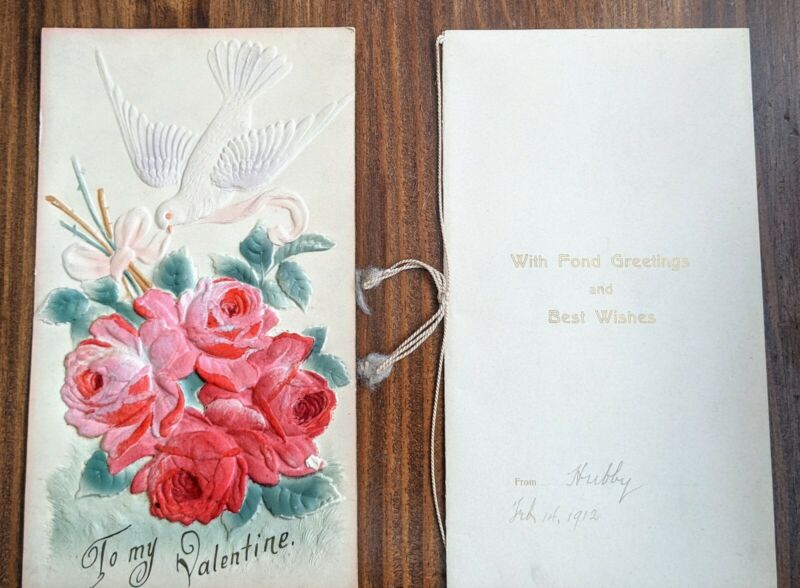 To my Valentine.
With Fond Greetings
and
Best Wishes
From Hubby
Feb 14, 1912